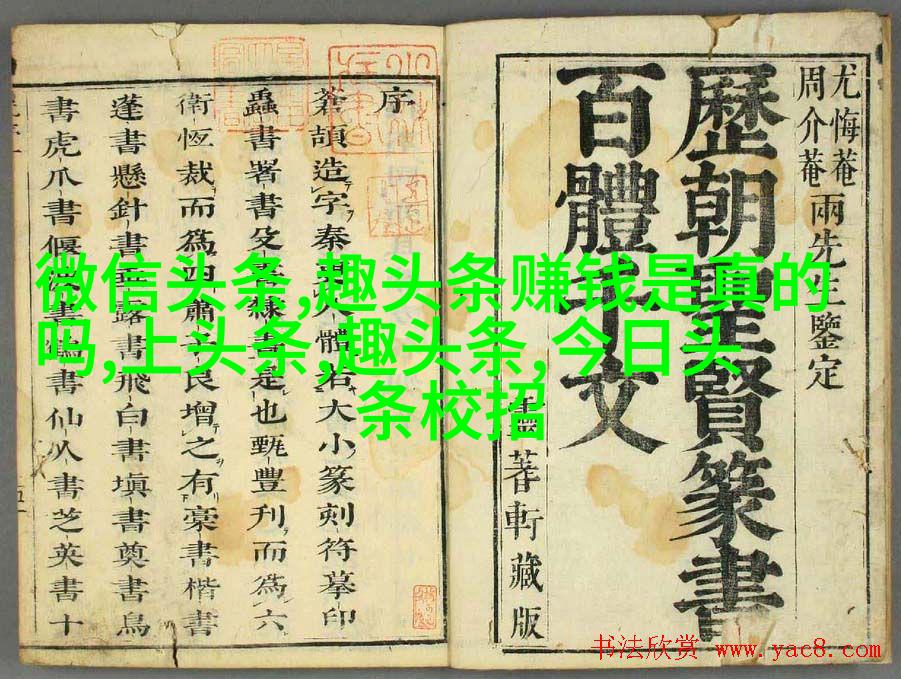 微信头条,趣头条赚钱是真的
吗,上头条,趣头条,今日头
条校招
尤悔菴
周介菴
兩先生鑒定
歷朝聖賢篆書
百體千文
蓍軒藏版
序
蒼頡造字秦八體大小篆刻符摹印
蟲書署書殳隸書是也甄豐刋而爲六
衛恆裁而爲四蕭子良增之有豪書楷書
蓬書懸針書垂露書飛白書塡書奠書鳥
書虎爪書偃波書書仙人書芝英書十
书法欣赏 www.yac8.com